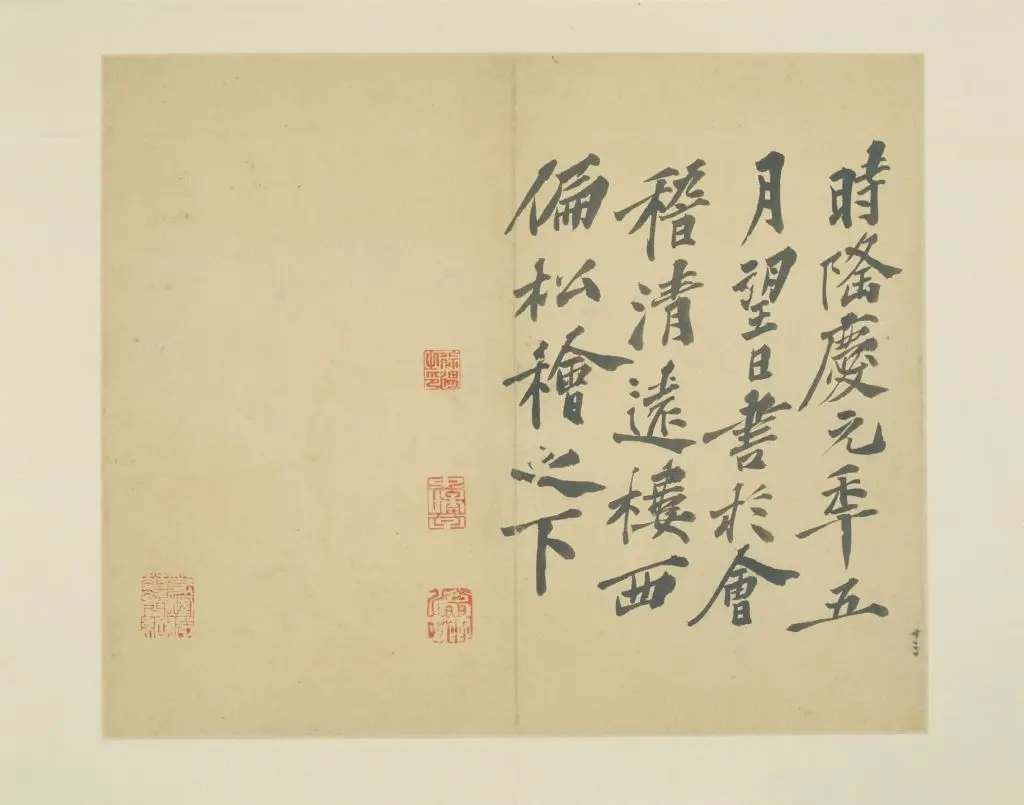 時隆慶元年五
月望日書於會
稽清遠樓西
偏松檜之下
徐渭之印